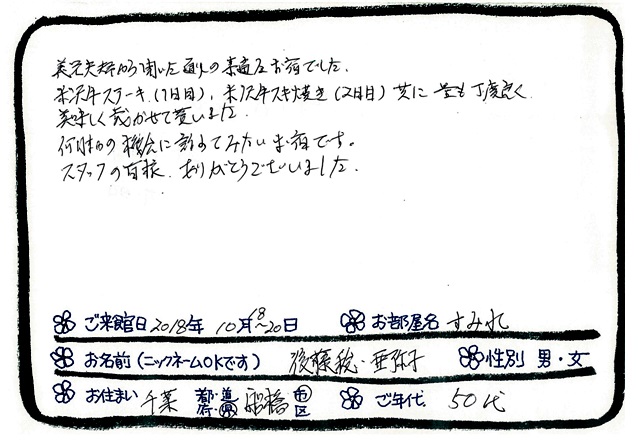 義兄夫婦から聞いた通りの素適なお宿でした。
米沢牛ステーキ(1日目)、米沢牛スキ焼き(2日目)共に量も丁度良く
美味しく頂かせて貰いました。
何時かの機会に訪ねてみたいお宿です。
スタッフの皆様、ありがとうございました。
ご来館日 2018年 10月18～20日 お部屋名 すみれ
お名前(ニックネームOKです) 後藤 稔・亜弥子 性別 男・女
お住まい 千葉 都・道・府・県 船橋 市・区 ご年代 50代